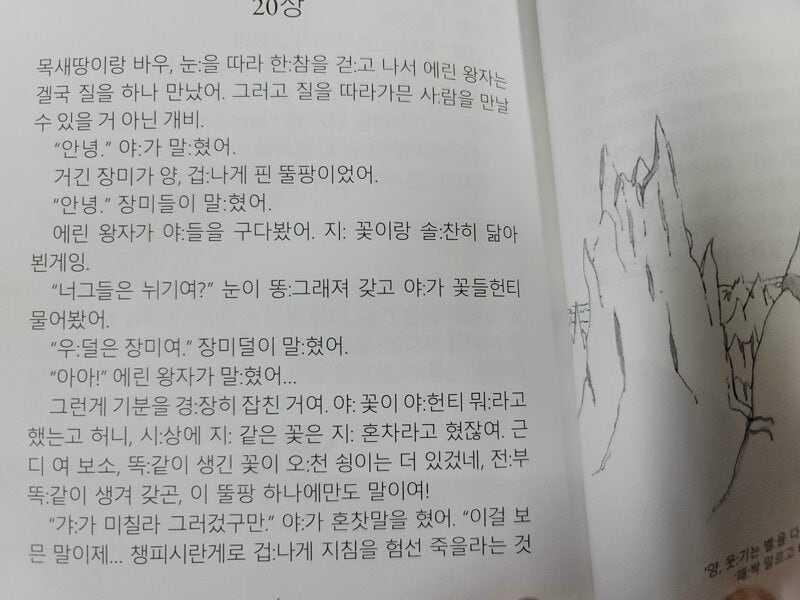 20장
목새땅이랑 바우, 눈:을 따라 한:참을 걷:고 나서 에린 왕자는
겔국 질을 하나 만났어. 그러고 질을 따라가믄 사:람을 만날
수 있을 거 아닌 개비.
“안녕.” 야:가 말:혔어.
거긴 장미가 양, 겁:나게 핀 뚤팡이었어.
“안녕.” 장미들이 말:혔어.
에린 왕자가 야:들을 구다봤어. 지: 꽃이랑 솔:찬히 닮아
뵌게잉.
“너그들은 뉘기여?” 눈이 똥:그래져 갖고 야:가 꽃들헌티
물어봤어.
“우:덜은 장미여.” 장미덜이 말:혔어.
“아아!” 에린 왕자가 말:혔어...
그런게 기분을 경:장히 잡친 거여. 야: 꽃이 야:헌티 뭐:라고
했는고 허니, 시:상에 지: 같은 꽃은 지: 혼차라고 혔잖여. 근
디 여 보소, 똑:같이 생긴 꽃이 오:천 슁이는 더 있겄네, 전:부
똑:같이 생겨 갖곤, 이 뚤팡 하나에만도 말이여!
“갸:가 미칠라 그러겄구만.” 야:가 혼찻말을 혔어. “이걸 보
믄 말이제... 챙피시란게로 겁:나게 지침을 험선 죽을라는 것
“양, 웃:기는 별:을 다